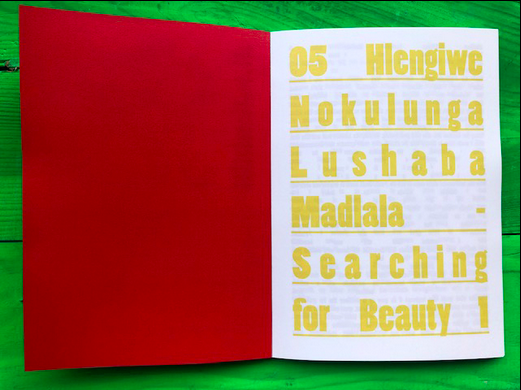 05 Hlengiwe
Nokulunga
Lushaba
Madlala -
Searching
for Beauty 1